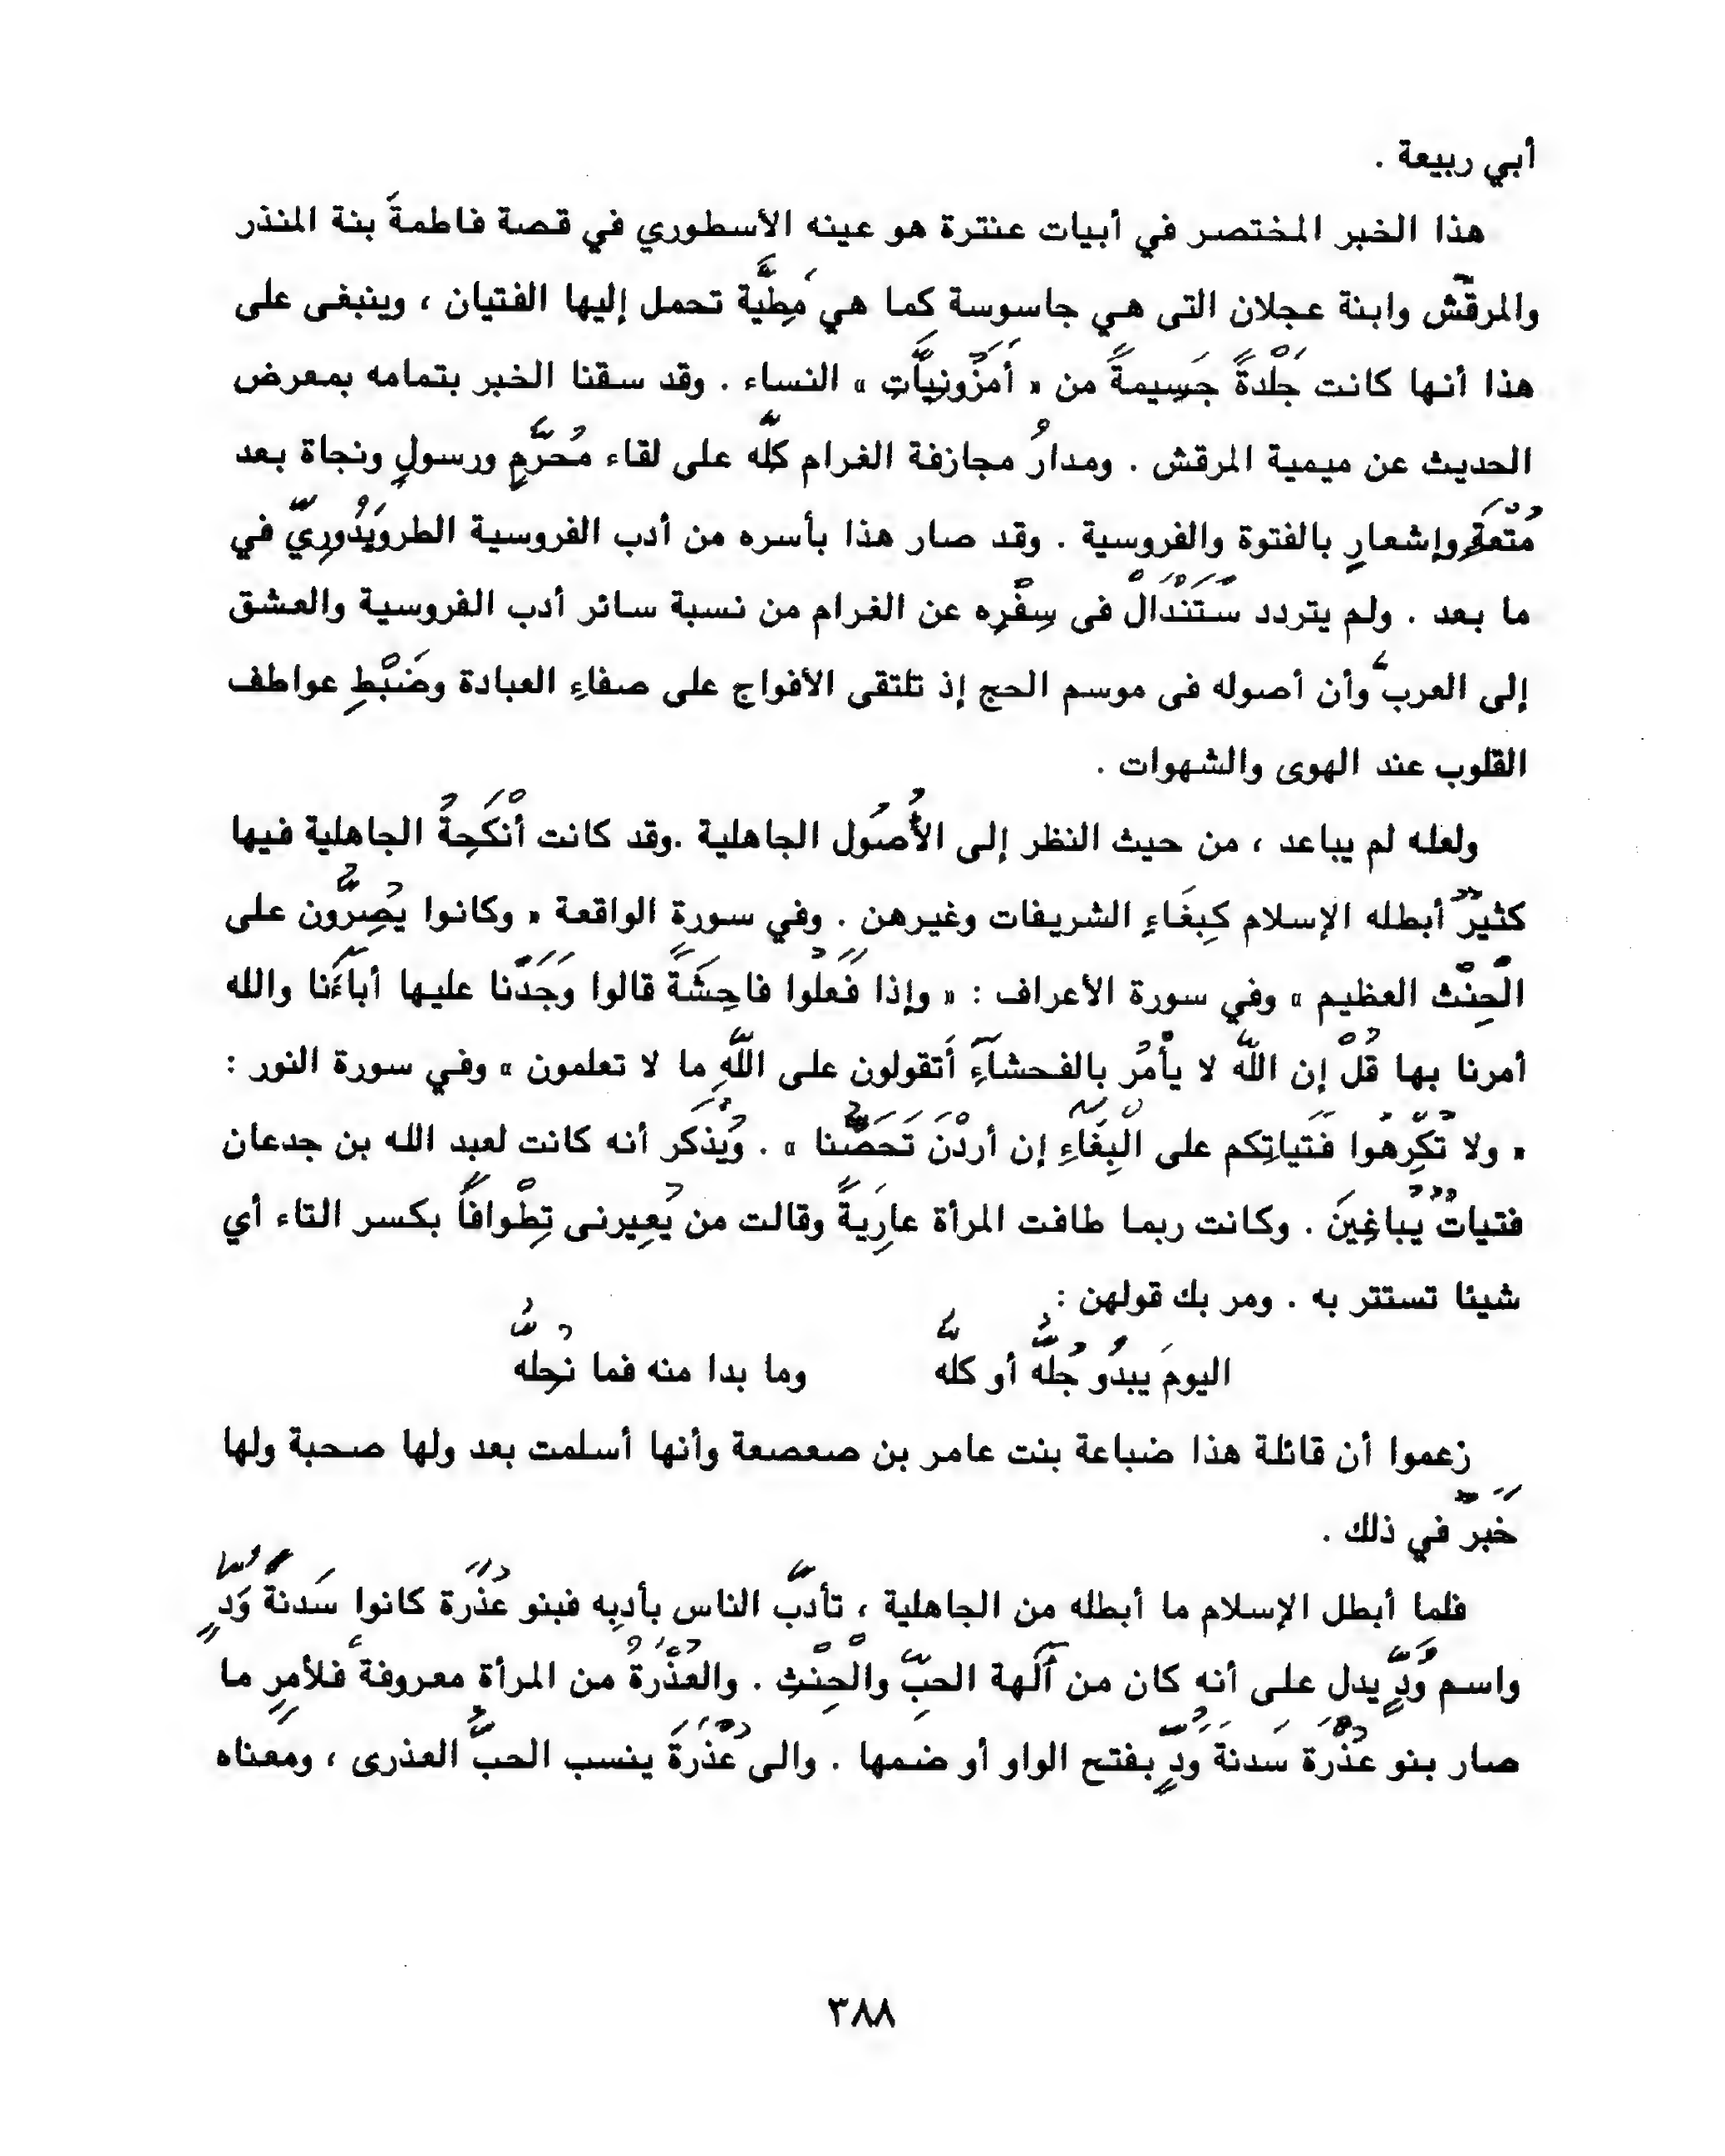 أبي ربيعة .
هذا الخبر المختصر في أبيات عنترة هو عينه الأسطوري في قصة فاطمةَ بنة المنذر
والمرقّش وابنة عجلان التى هي جاسوسة كما هي مَطِيَّة تحمل إليها الفتيان ، وينبغى على
هذا أنها كانت جَلْدةً جَسِيمةً من « أمَزُونِيَّاتِ » النساء . وقد سقنا الخبر بتمامه بمعرض
الحديث عن ميمية المرقش . ومدارُ مجازفة الغرام كلّه على لقاء مُحرَّمٍ ورسولٍ ونجاة بعد
مُتْعَةٍ وإشعارٍ بالفتوة والفروسية . وقد صار هذا بأسره من أدب الفروسية الطروبَدُورِيّ في
ما بعد . ولم يتردد سْتَنْدَالْ فى سِفْرِه عن الغرام من نسبة سائر أدب الفروسية والعشق
إلى العرب وأن أصوله فى موسم الحج إذ تلتقى الأفواج على صفاءِ العبادة وضَبْطِ عواطف
القلوب عند الهوى والشهوات .
ولعله لم يباعد ، من حيث النظر إلى الأُصُول الجاهلية .وقد كانت أَنْكَحِةُ الجاهلية فيها
كثيرٌ أبطله الإسلام كبِغَاءِ الشريفات وغيرهن . وفي سورة الواقعة « وكانوا يُصِرُّون على
الْحِنْثِ العظيم » وفي سورة الأعراف : « وإذا فَعَلُوا فاحِشَةً قالوا وَجَدْنا عليها أباءَنا والله
أمرنا بها قُلْ إن اللّهَ لا يأْمُر بالفحشآءِ أَتقولون على اللّهِ ما لا تعلمون » وفي سورة النور :
« ولا تُكْرِهُوا فَتَياتِكم على الْبِغَآءِ إن أردْنَ تَحَصُّنا » . وُيذكَر أنه كانت لعبد الله بن جدعان
فتياتٌ يُباغِينَ . وكانت ربما طافت المرأة عارِيةً وقالت من يُعِيرنى تِطْوافاً بكسر التاء أي
شيئا تستتر به . ومر بك قولهن :
اليومَ يبدُو جُلُّهُ أو كلّه وما بدا منه فما نُحِلُّه
زعموا أن قائلة هذا ضباعة بنت عامر بن صعصعة وأنها أسلمت بعد ولها صحبة ولها
خَبَرٌ في ذلك .
فلما أبطل الإسلام ما أبطله من الجاهلية ، تأدّبَ الناس بأدبِه فبنو عُذْرَة كانوا سَدنةَ وَُدٍّ
واسم وَُدٍّ يدل على أنه كان من آلهة الحبّ والْحِنْثِ . والعُذْرَةُ من المرأة معروفة فلأمرٍ ما
صار بنو عُذْرَة سَدنةَ وَُدٍّ بفتح الواو أو ضمها . والى عُذْرَةَ ينسب الحبّ العذرى ، ومعناه
٣٨٨